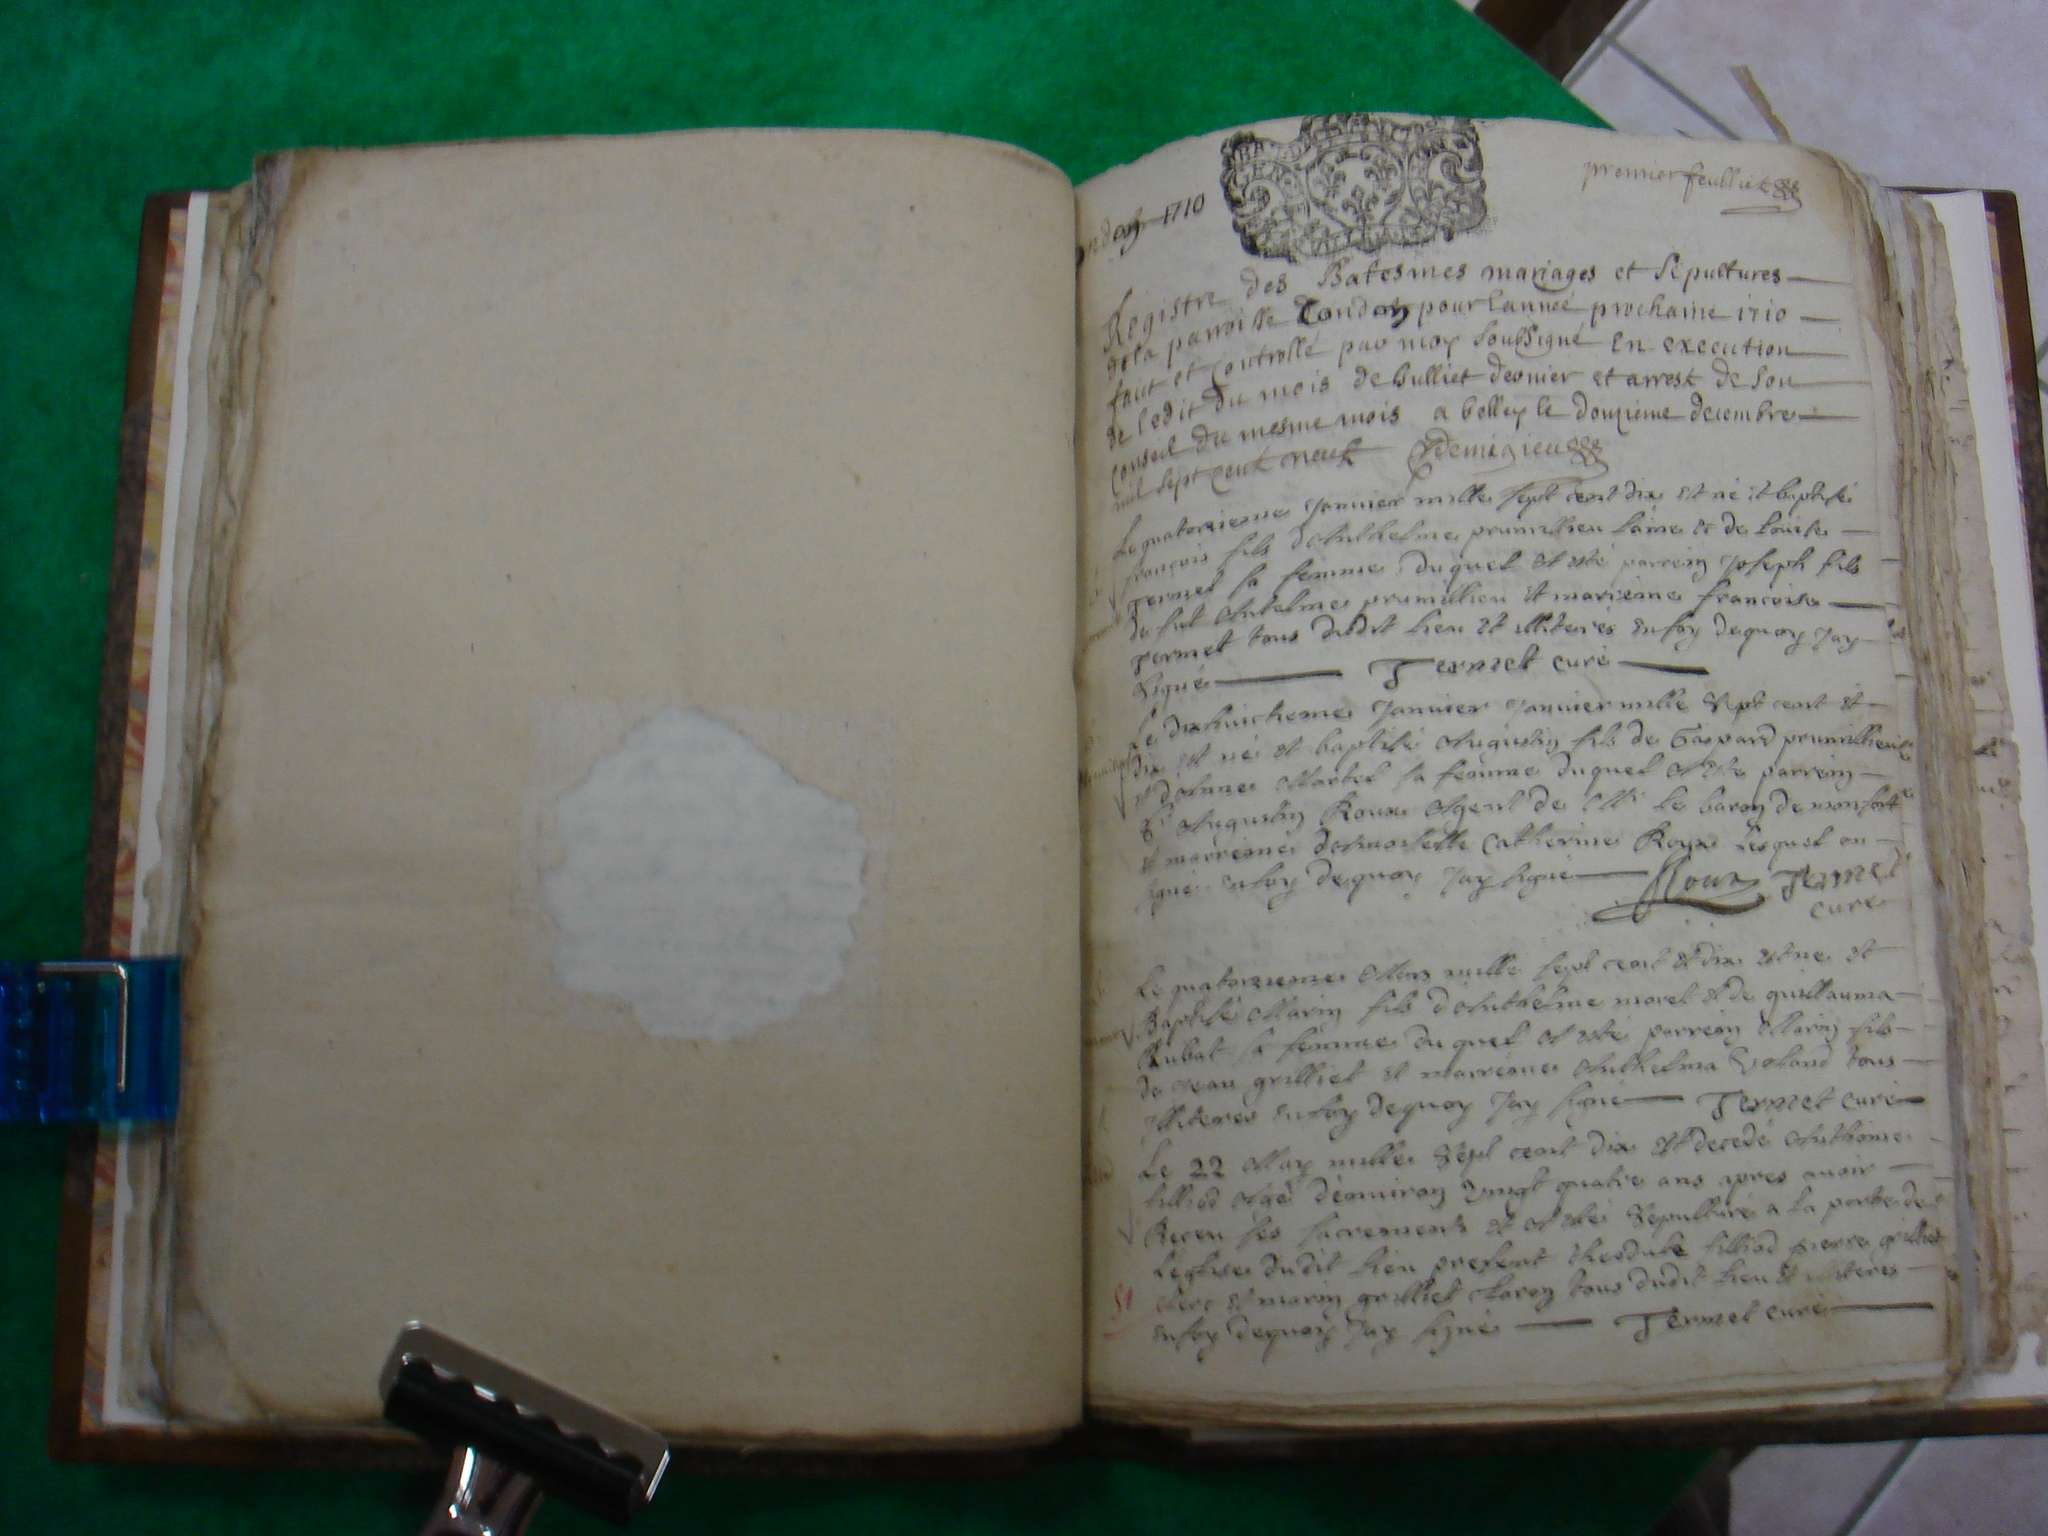 ondon 1710
premier feulliet
Registre des Batesmes mariages et Sepultures
de la parroisse Condon pour lannée prochaine 1710
fait et controllé par moy soubsigné En execution
de l'edit du mois de Julliet dernier et arrest de son
conseil du mesme mois a belley le douzieme decembre
mil sept cent neuf Demigieu
Le quatorzieme Janvier mille sept cent dix est né et baptisé
françois fils d'Anthelme prumillieu laine et de Louise
Termet sa femme duquel a esté parrein Joseph fils
de fut Antelme prumillieu et marreine francoise
Termet tous dudit lieu et illiteres en foy dequoy Jay
signé Termet curé
Le dixhuictieme Janvier Janvier mille sept cent et
dix est né et baptisé Augustin fils de Gaspard prumillieu
et d'Anne Martel sa femme duquel a esté parrein
Sr Augustin Roux Agent de Mr le baron de monfort
et marreine damoiselle Catherine Roux lesquel on
signé en foy de quoy Jay signé Roux Termet
curé
Le quatorzieme mille sept cent et dix est ne et
Baptisé Marin fils d'Anthelme morel et de guillauma
Rubat sa femme duquel a esté parrein Marin fils
de Jean grilliet et marreine Anthelma Voland tous
illiteres en foy dequoy Jay signé Termet curé
Le 22 May mille sept cent dix est decedé Anthoine
filliod Agé d'environ vingt quatre ans apres avoir
Receu ses sacrements et a esté sepulturé a la porte de
Leglise dudit lieu present theodule filliod pierre grilliet
clerc et marin grilliet tous dudit lieu et illiteres
en foy dequoy Jay signé Termet curé